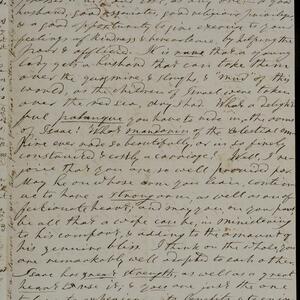 husband, good associates, good religious privileges
& a good opportunity to give exercise to your
feelings of kindness & benevolence, by helping the
poor & afflicted. It is rare that a young
lady gets a husband that can take them
over the quagmire, & sloughs, & "mud" of this
world, as the children of Israel were taken
over the red sea, dry shod. What a delight
ful palanquin you have to ride in, the arms
of Isaac! What mandarin of the Celestial em
pire ever rode so beautifully, or in so finely
constructed & costly a carriage! Well, I re
joice that you are so well provided for.
May he on whose arm you lean, continue
to have a strong arm, as well as an af
fectionate heart; and may you on your part
be all that a wife can be, in ministering
to his comfort, & to adding to the amount of
his genuine bliss. I think on the whole, you
are remarkably well adapted to each other.
Isaac has great strength, as well as a great
heart to use it, & you are just the one